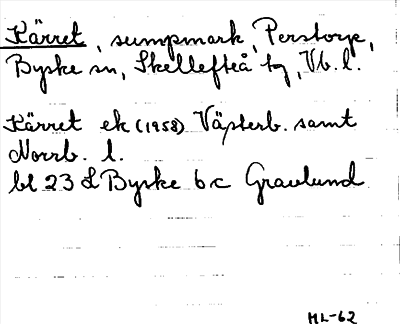 Kärret, sumpmark, Perstorp,
Byske sn, Skellefteå tg, Vb. l.
Kärret ek (1958) Västerb. samt
Norrb. l.
bl 23 L Byske 6c Gravlund
HL-62